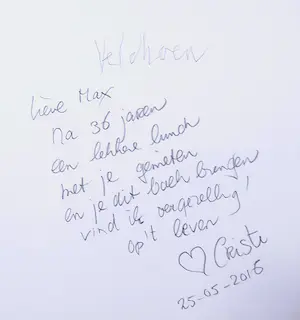 Veldhoven
Lieve Max
na 36 jaren
een lekkere lunch
met je genieten
en je dit boek brengen
vind ik
op 't leven!
♡ Criste
25-05-2016